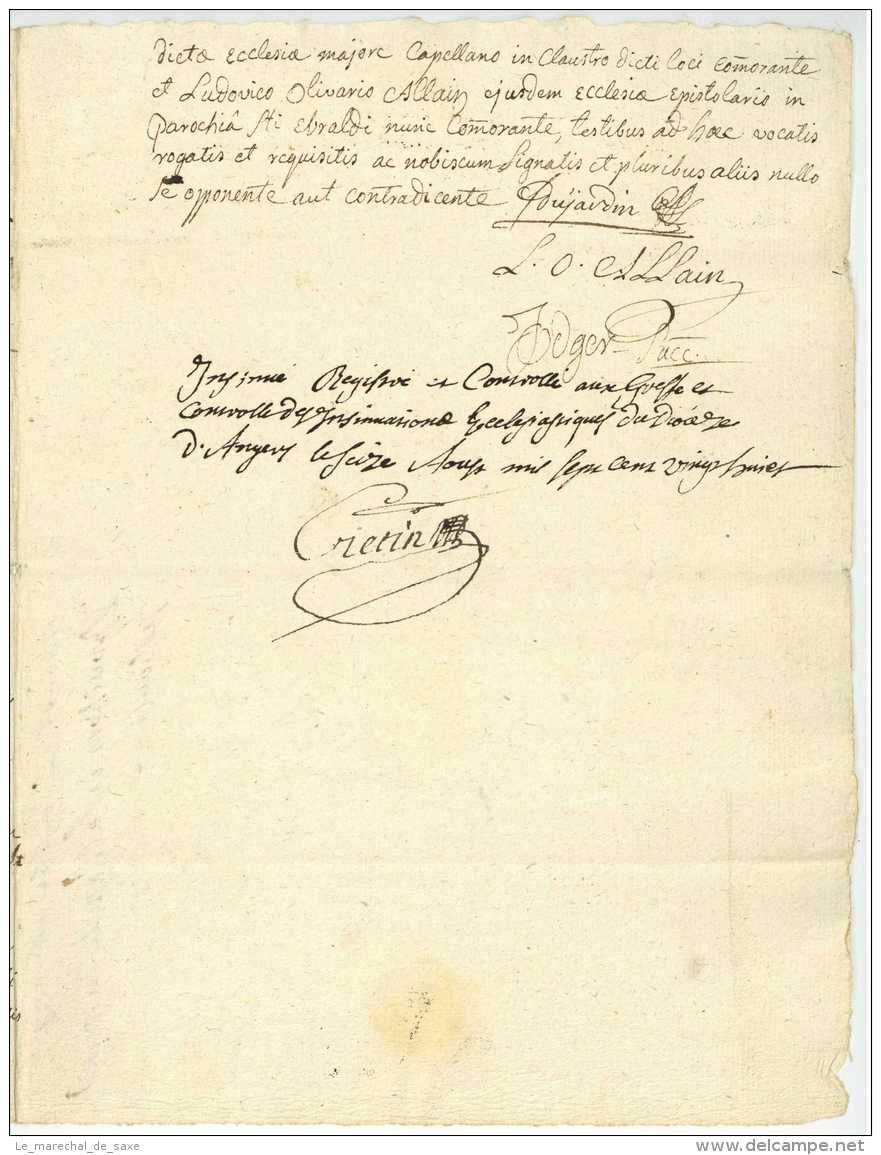 dictæ Ecclesiæ majore Capellano in Claustro dicti loci comorante
et Ludovico Olivario Allain ejusdem Ecclesiæ Epistolario in
parochiâ Sti Ebraldi nunc Comorante, testibus ad hæc vocatis
rogatis et requisitis ac nobiscum signatis et pluribus aliis nullo
se opponente aut contradicente Dujardin
L. O. Allain
Insinué Registré et Controllé aux Greffe et
Controlle des Insinuations Ecclesiastiques du Diocèze
D'Angers le seize Aoust mil sept cent vingt huict
Cretin
Le_marechal_de_saxe
www.delcampe.net